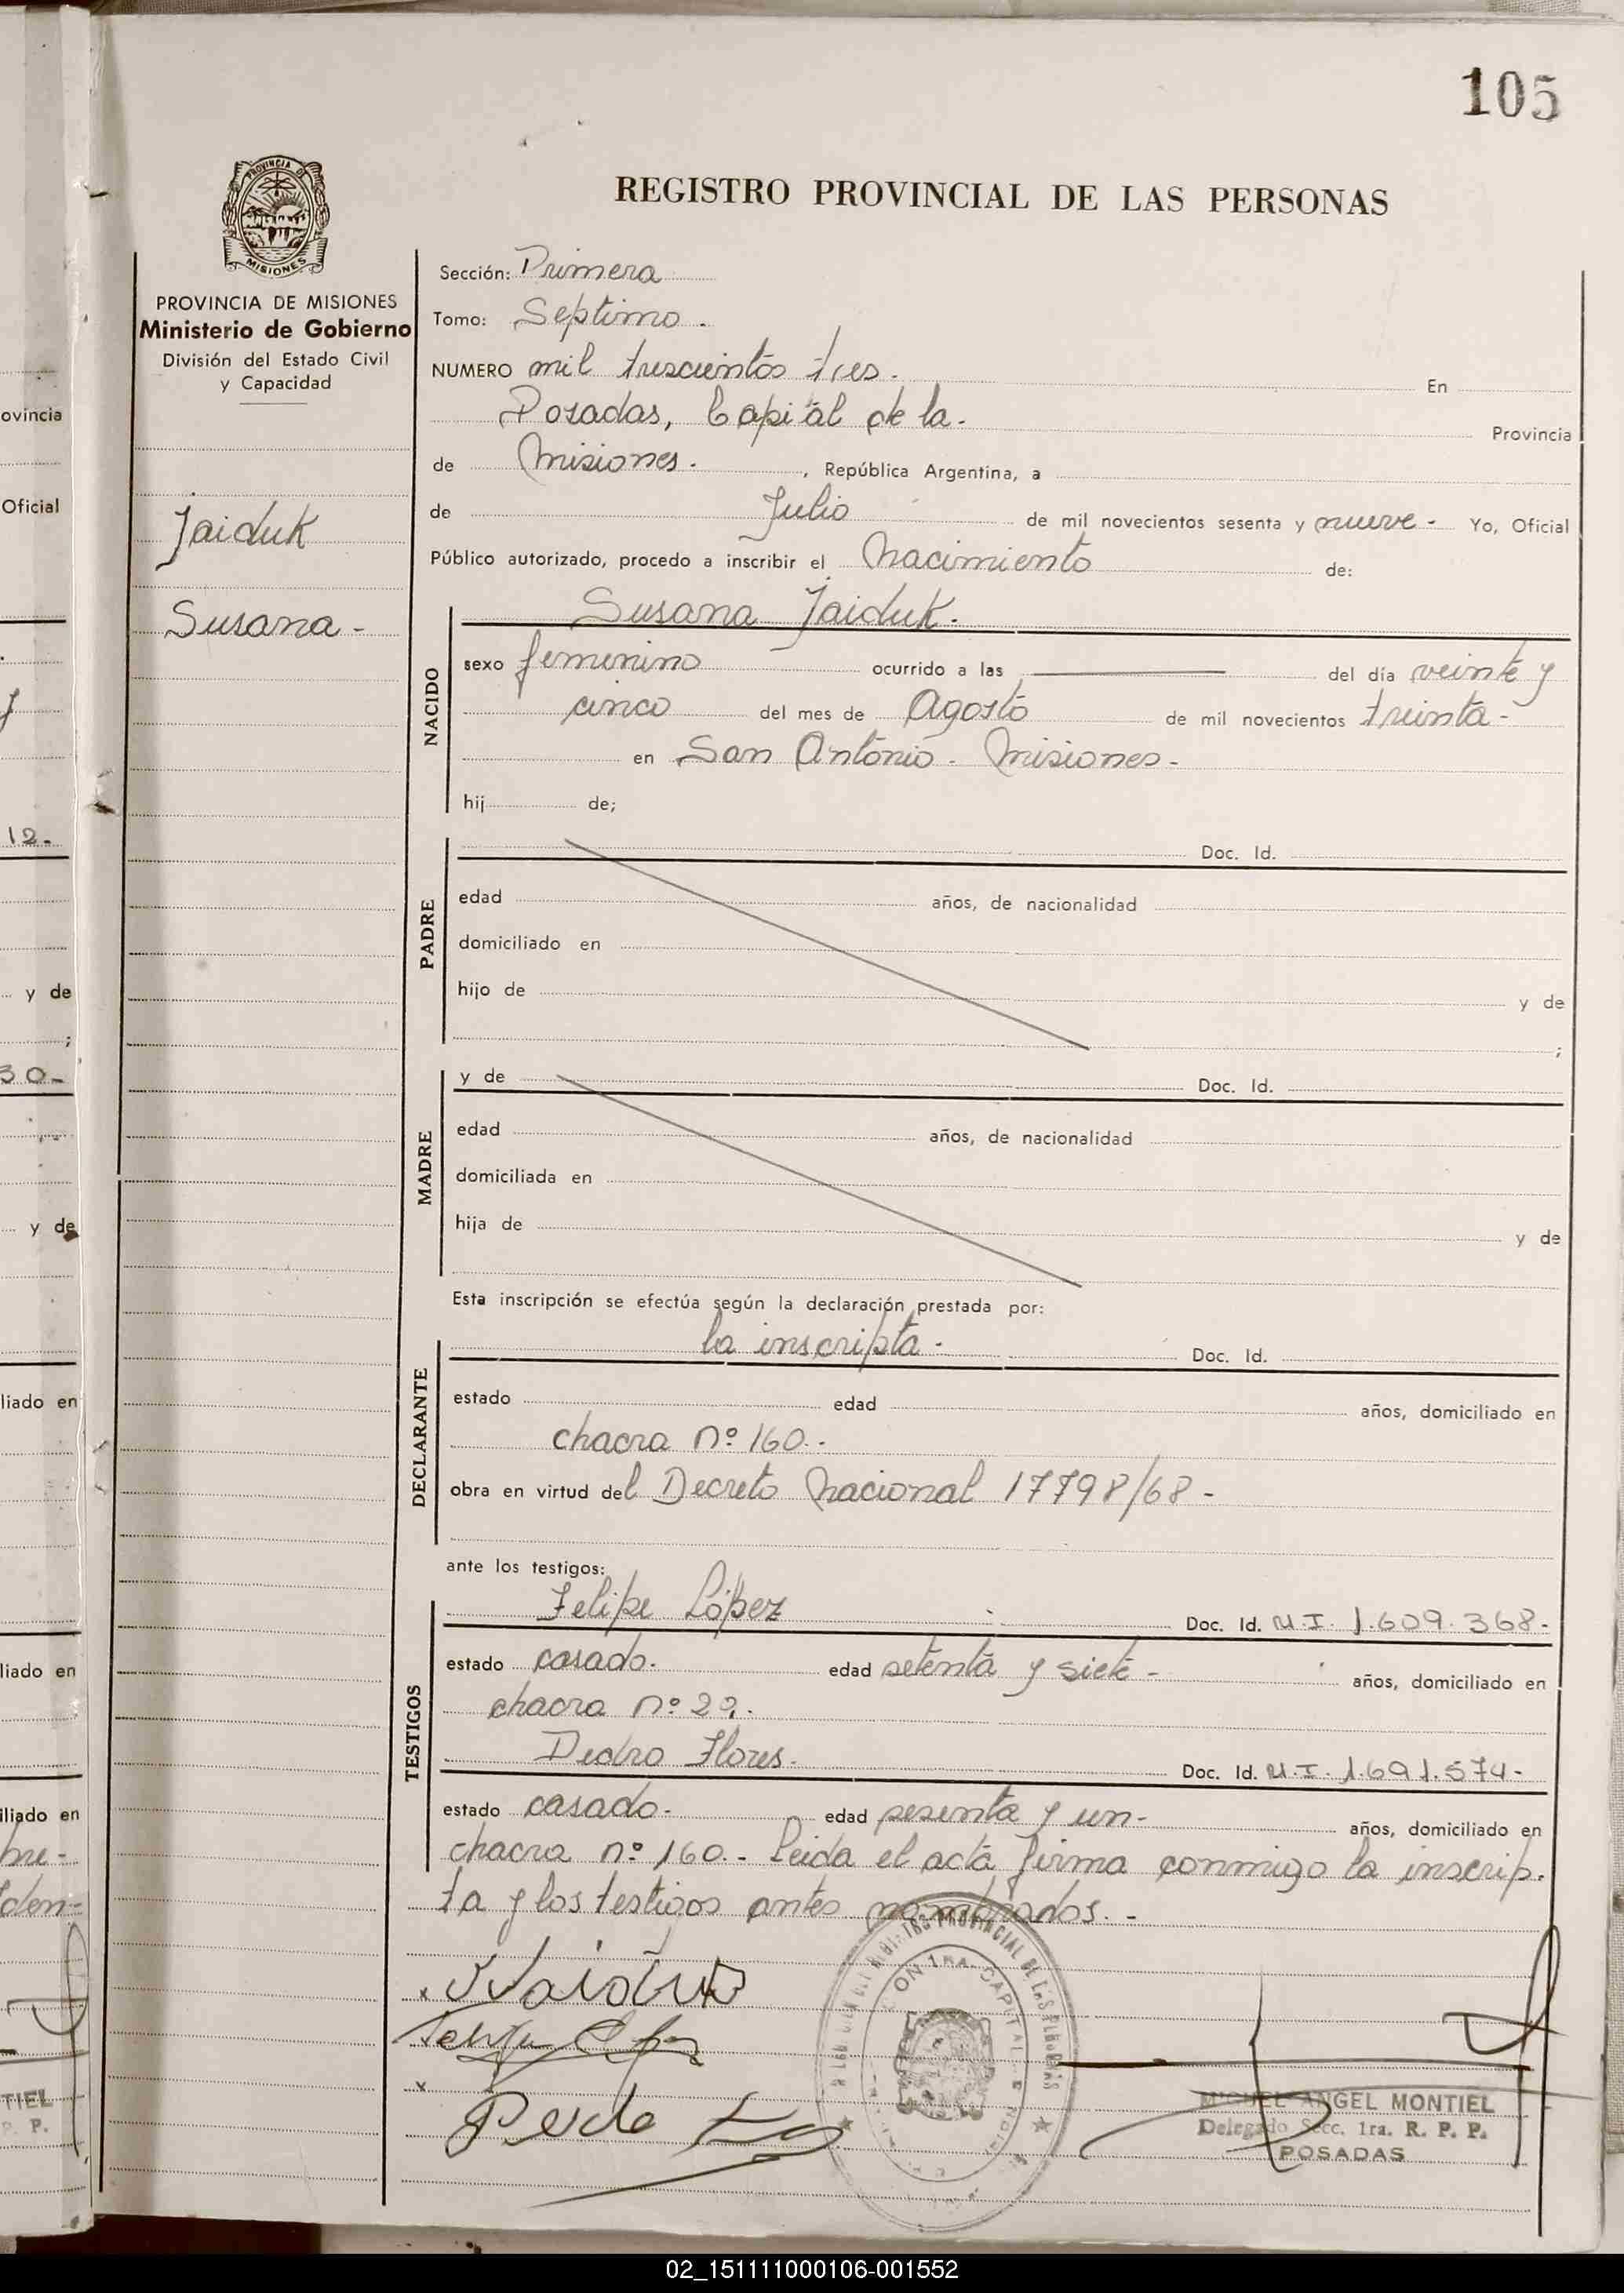 105
REGISTRO PROVINCIAL DE LAS PERSONAS
PROVINCIA DE MISIONES
Ministerio de Gobierno
División del Estado Civil
y Capacidad
Jaiduk
Susana -
Sección: Primera
Tomo: Septimo.
NUMERO mil trescientos tres. En
Posadas, Capital de la. Provincia
de Misiones. , República Argentina, a
de Julio de mil novecientos sesenta y nueve - Yo, Oficial
Público autorizado, procedo a inscribir el Nacimiento de:
Susana Jaiduk.
NACIDO
sexo femenino ocurrido a las del día veinte y
cinco del mes de Agosto de mil novecientos treinta -
en San Antonio - Misiones -
hij de;
PADRE
Doc. Id.
edad años, de nacionalidad
domiciliado en
hijo de y de
;
MADRE
y de Doc. Id.
edad años, de nacionalidad
domiciliada en
hija de y de
Esta inscripción se efectúa según la declaración prestada por:
DECLARANTE
la inscripta - Doc. Id.
estado edad años, domiciliado en
chacra nº 160.-
obra en virtud del Decreto Nacional 17798/68 -
ante los testigos:
TESTIGOS
Felipe López Doc. Id. M.I. 1.609.368-
estado casado. edad setenta y siete - años, domiciliado en
chacra nº
Pedro Flores. Doc. Id. M.I. 1.691.574-
estado casado. edad sesenta y un- años, domiciliado en
chacra nº 160.- Leida el acta firma conmigo la inscrip.
ta y los testigos antes nombrados. -
MIGUEL ANGEL MONTIEL
Delegado Secc. 1ra. R. P. P.
POSADAS
02_151111000106-001552